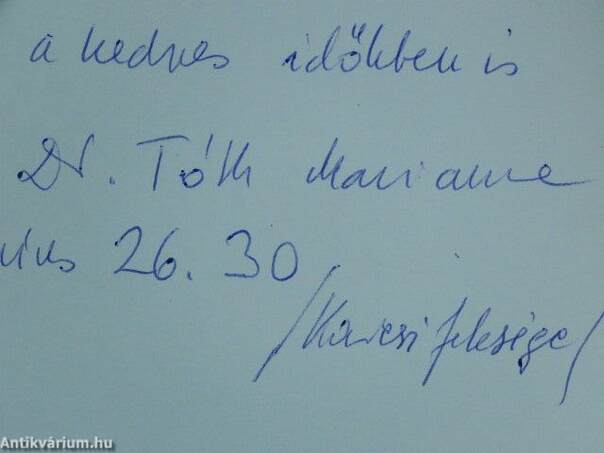 a kedves időkben is
Dr. Tóth Marianne
26. 30
/Karcsi felesége/
Antikvárium.hu